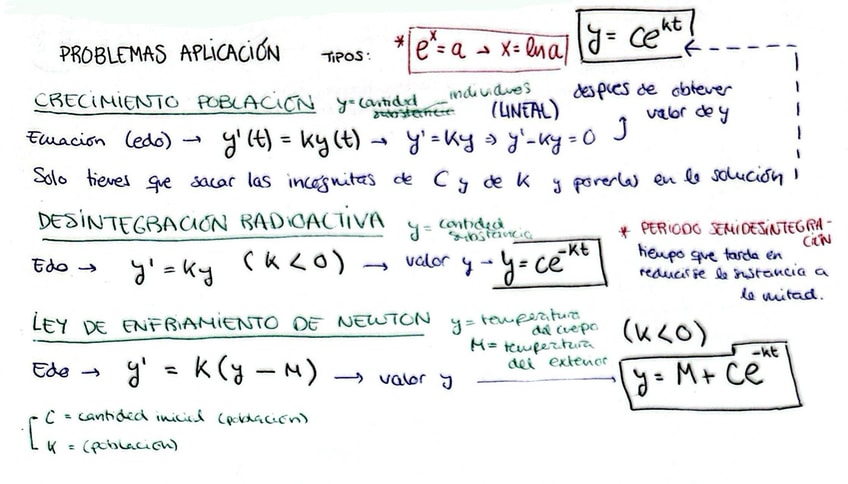 PROBLEMAS APLICACIÓN TIPOS: * e^x = a → x = ln a y = ce^kt
CRECIMIENTO POBLACIÓN y = cantidad substancia individuos (LINEAL) despues de obtener valor de y
Ecuación (edo) → y'(t) = Ky(t) → y' = Ky ⇒ y' - Ky = 0
Solo tienes que sacar las incognitas de C y de K y ponerlas en la solución
DESINTEGRACIÓN RADIOACTIVA y = cantidad substancia
Edo → y' = Ky (K < 0) → valor y → y = ce^-kt
* PERIODO SEMIDESINTEGRACIÓN
tiempo que tarda en
reducirse la sustancia a
la mitad.
LEY DE ENFRIAMIENTO DE NEWTON y = temperatura del cuerpo
M = temperatura del exterior
(K < 0)
Edo → y' = K(y - M) → valor y → y = M + Ce^-kt
C = cantidad inicial (población)
K = (población)